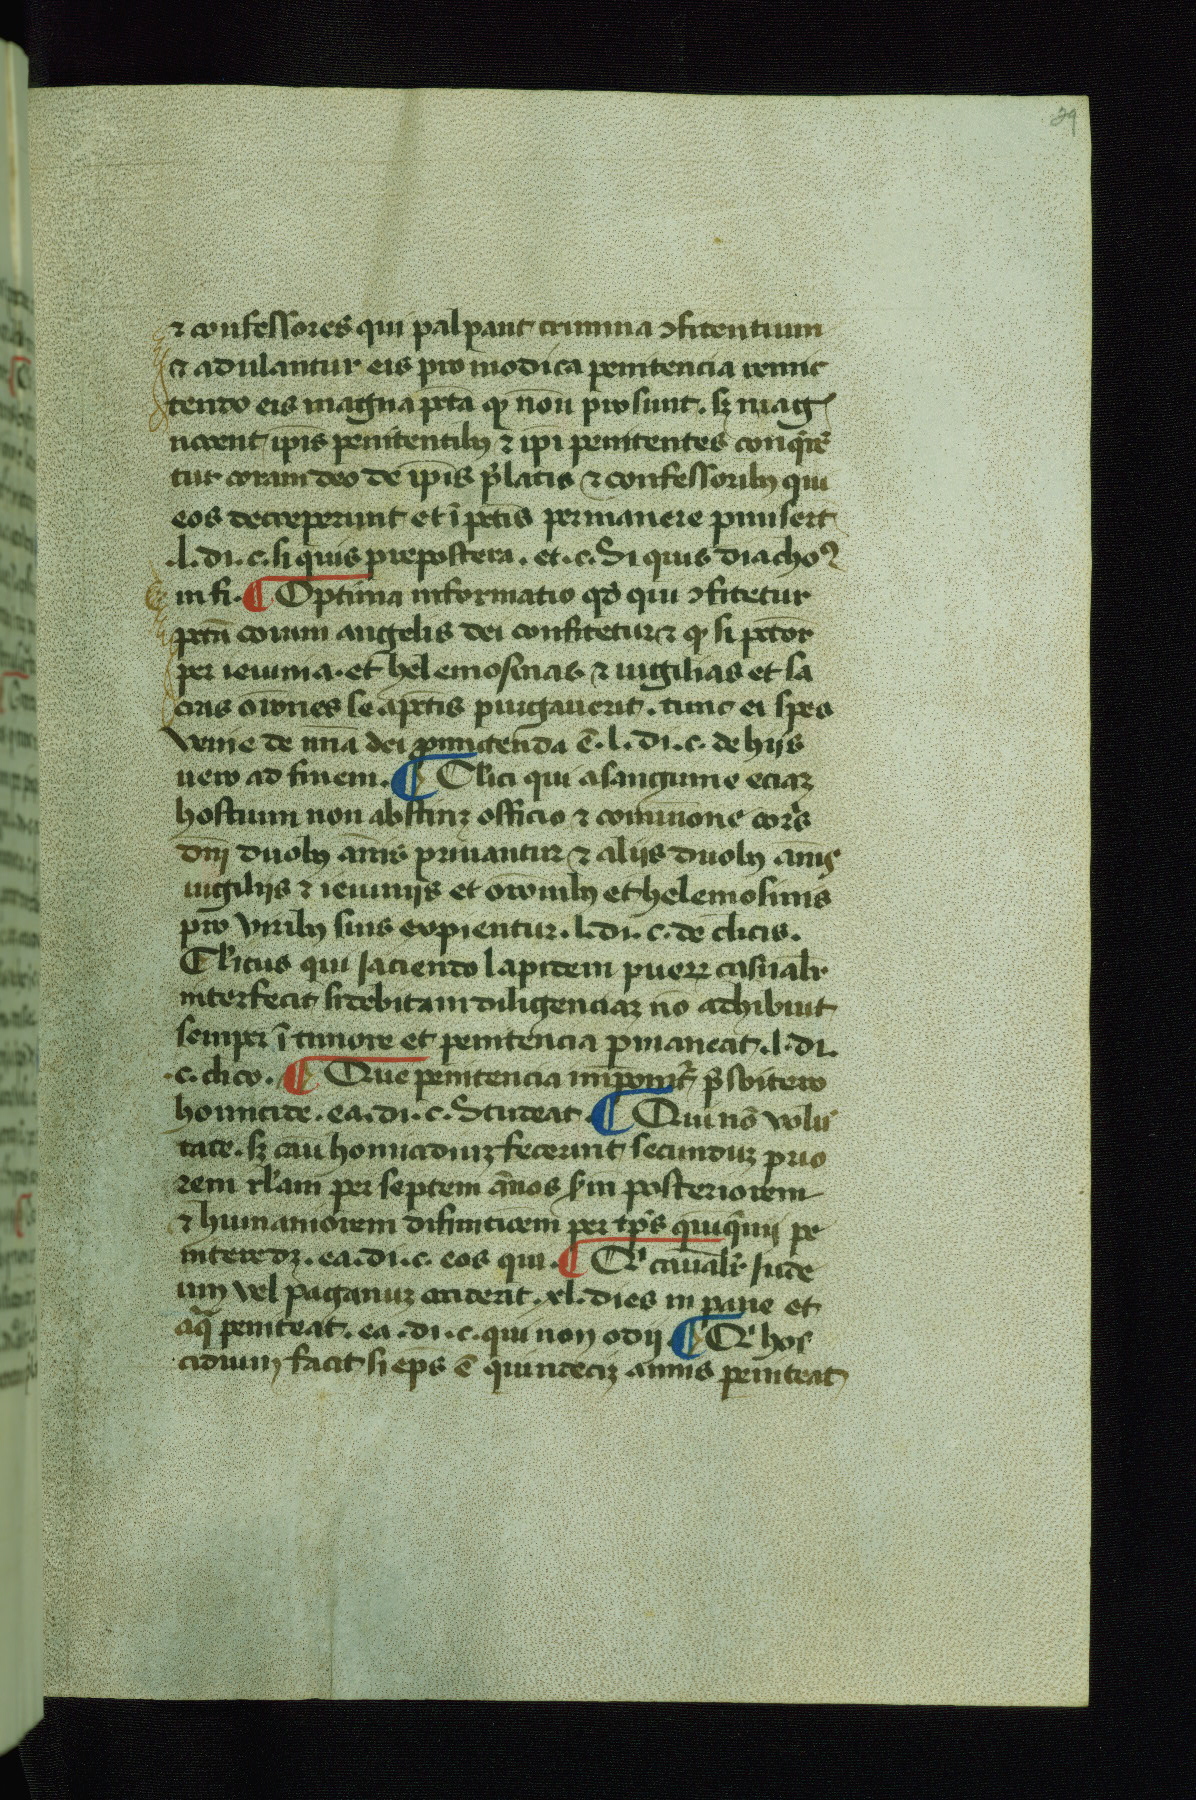 29
⁊ confessores qui palpant crimina ↄfitentium
⁊ adulantur eis pro modica penitencia remit
tendo eis magna pctā qͥ non prosunt. sꝫ mag
nocent ip̄is penitentibꝰ ⁊ ip̄i penitentes conqͥrē
tur coram deo de ip̄is p̄latis ⁊ confessoribꝰ qui
eos decreperunt et ī pctīs permanere pmiserūt
.l. di. c. si quis prepostera. et. c. Si quis diachoꝰ
in fi. ¶ Optima informatio qd̄ qui ↄfitetur
pctm̄ coram angelis dei confitetur ⁊ qͥ si pctōr
per ieiunia. et helemosinas ⁊ uigilias et sa
cras or̄ones se a pctīs purgauerit. tunc ei spes
venie de mīa dei ꝓmictenda ē. l. di. c. de hijs
uero ad finem. ¶ Cl̄ici qui a sanguine eciaꝫ
hostium non abstinꝫ officio ⁊ com̄unione corꝑis
dn̄j duobꝰ annis priuantur ⁊ alijs duobꝰ annis
uigilijs ⁊ ieiunijs et or̄onibꝰ et helemosinis
pro viribꝰ suis expientur. l. di. c. de cl̄icis.
Cl̄icus qui iaciendo lapidem pueꝝ casual̄r
interfecit si debitam diligenciaꝫ nō adhibuit
semper ī timore et penitencia ꝑmaneat. l. di.
.c. cl̄ico. ¶ Que penitencia imponit᷑ p̄sbitero
homicide. ea. di. c. Studeat ¶ Qui nō volū
tate. sꝫ casu homicidiuꝫ fecerunt secunduꝫ prio
rem rl̄am per septem ānos scd̄m posteriorem
⁊ humaniorem difinitioem per tp̄s quiqͥnnij pe
nitere dꝫ. ea. di. c. eos qui. ¶ Qͥ casual̄r iude
um vel paganuꝫ occiderit. xl. dies in pane et
aqͣ peniteat. ea. di. c. qui non odij ¶ Qͥ ho
cidium facit si ep̄s ē quindeciꝫ annis peniteat